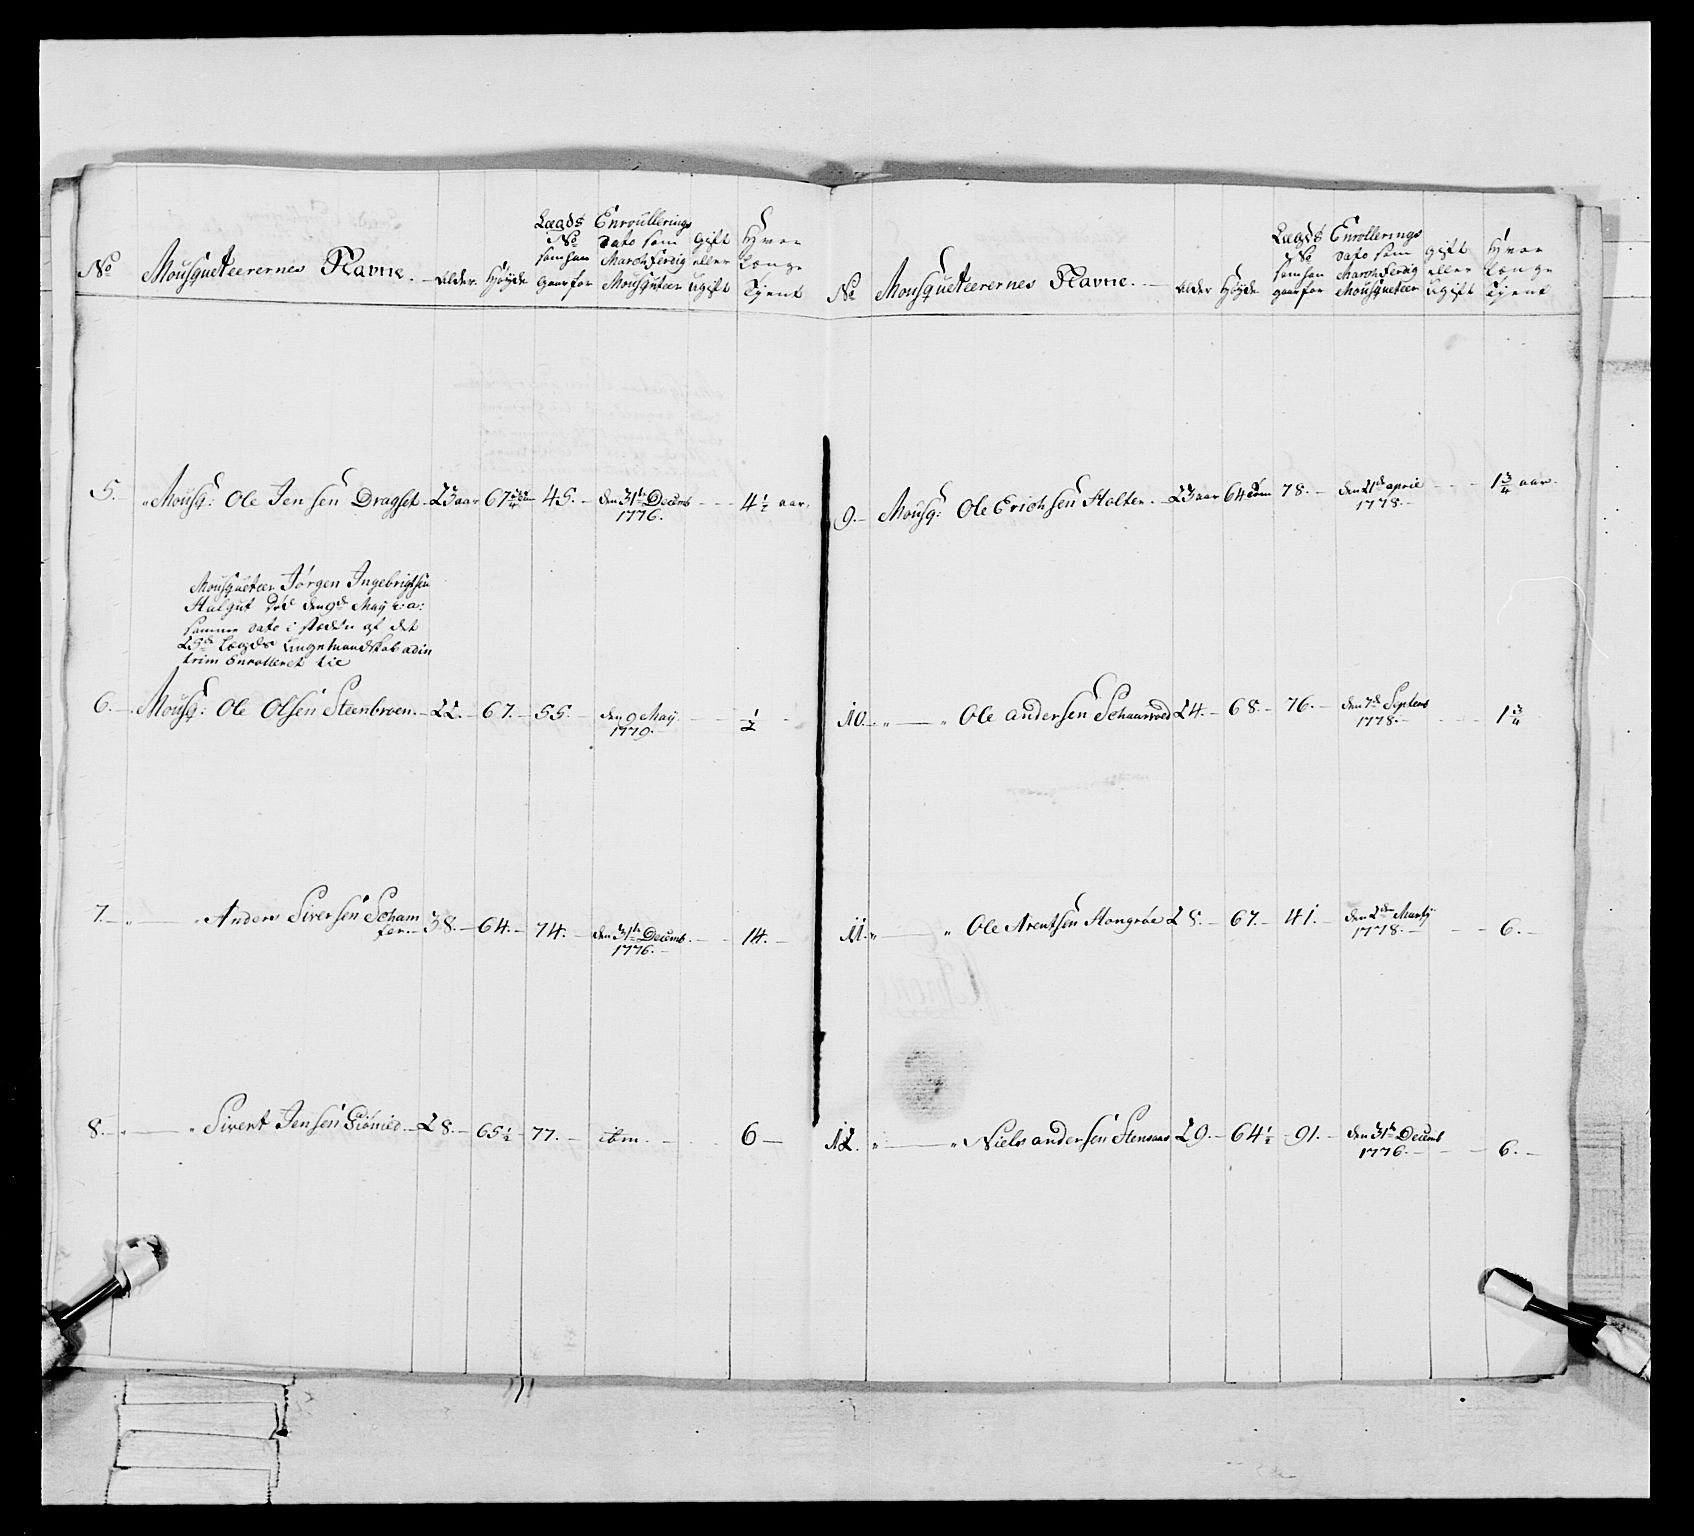 No
Mousqueteerernes Navne.
Alder.
Høyde
Lægds
No
som han
gaar for
Enroullerings
Dato som
March ferdig
Mousqueteer
Gift
eller
Ugift
Hvor
Længe
Tjent
5. Mousq: Ole Jensen Dragset 23 aar 67 3/4 45. den 31te Decemb 4 1/2 aar.
1776.
Mousqueteer Jørgen Ingebrigtsen
Halgut Død den 9de May
samme Dato i stæden af det
Lægds
6. Mousq: Ole Olsen Steenbroen. 22. 67. 55. den 9 May 1/2
1779.
7. " " Anders Sivertsen Scham 38. 64. 74. den 31te Decemb. 14.
fer.
1776.
8. " " Sivert Jensen Siømæd 28. 65 1/2 77. ibm. 6
No
Mousqueteerernes Navne.
Alder
Høyde
Lægds
No
som han
gaar for
Enrollerings
Dato som
March ferdig
Mousqueteer
Gift
eller
Ugift
Hvor
Længe
Tjent
9. Mousq: Ole Erichsen Holten. 23 aar 64 tom 78. den 21de april 1 3/4 aar.
1778.
10. " " Ole andersen Schaarvold 24. 68. 76. den 7de Septemb 1 3/4
1778.
11. " " Ole Arentsen Hongrøe 28. 67. 41. den 2den Martij 6.
1778.
12. " " Niels andersen Stensaas 29. 64 1/2 91. den 31te Decemb 6.
1776.